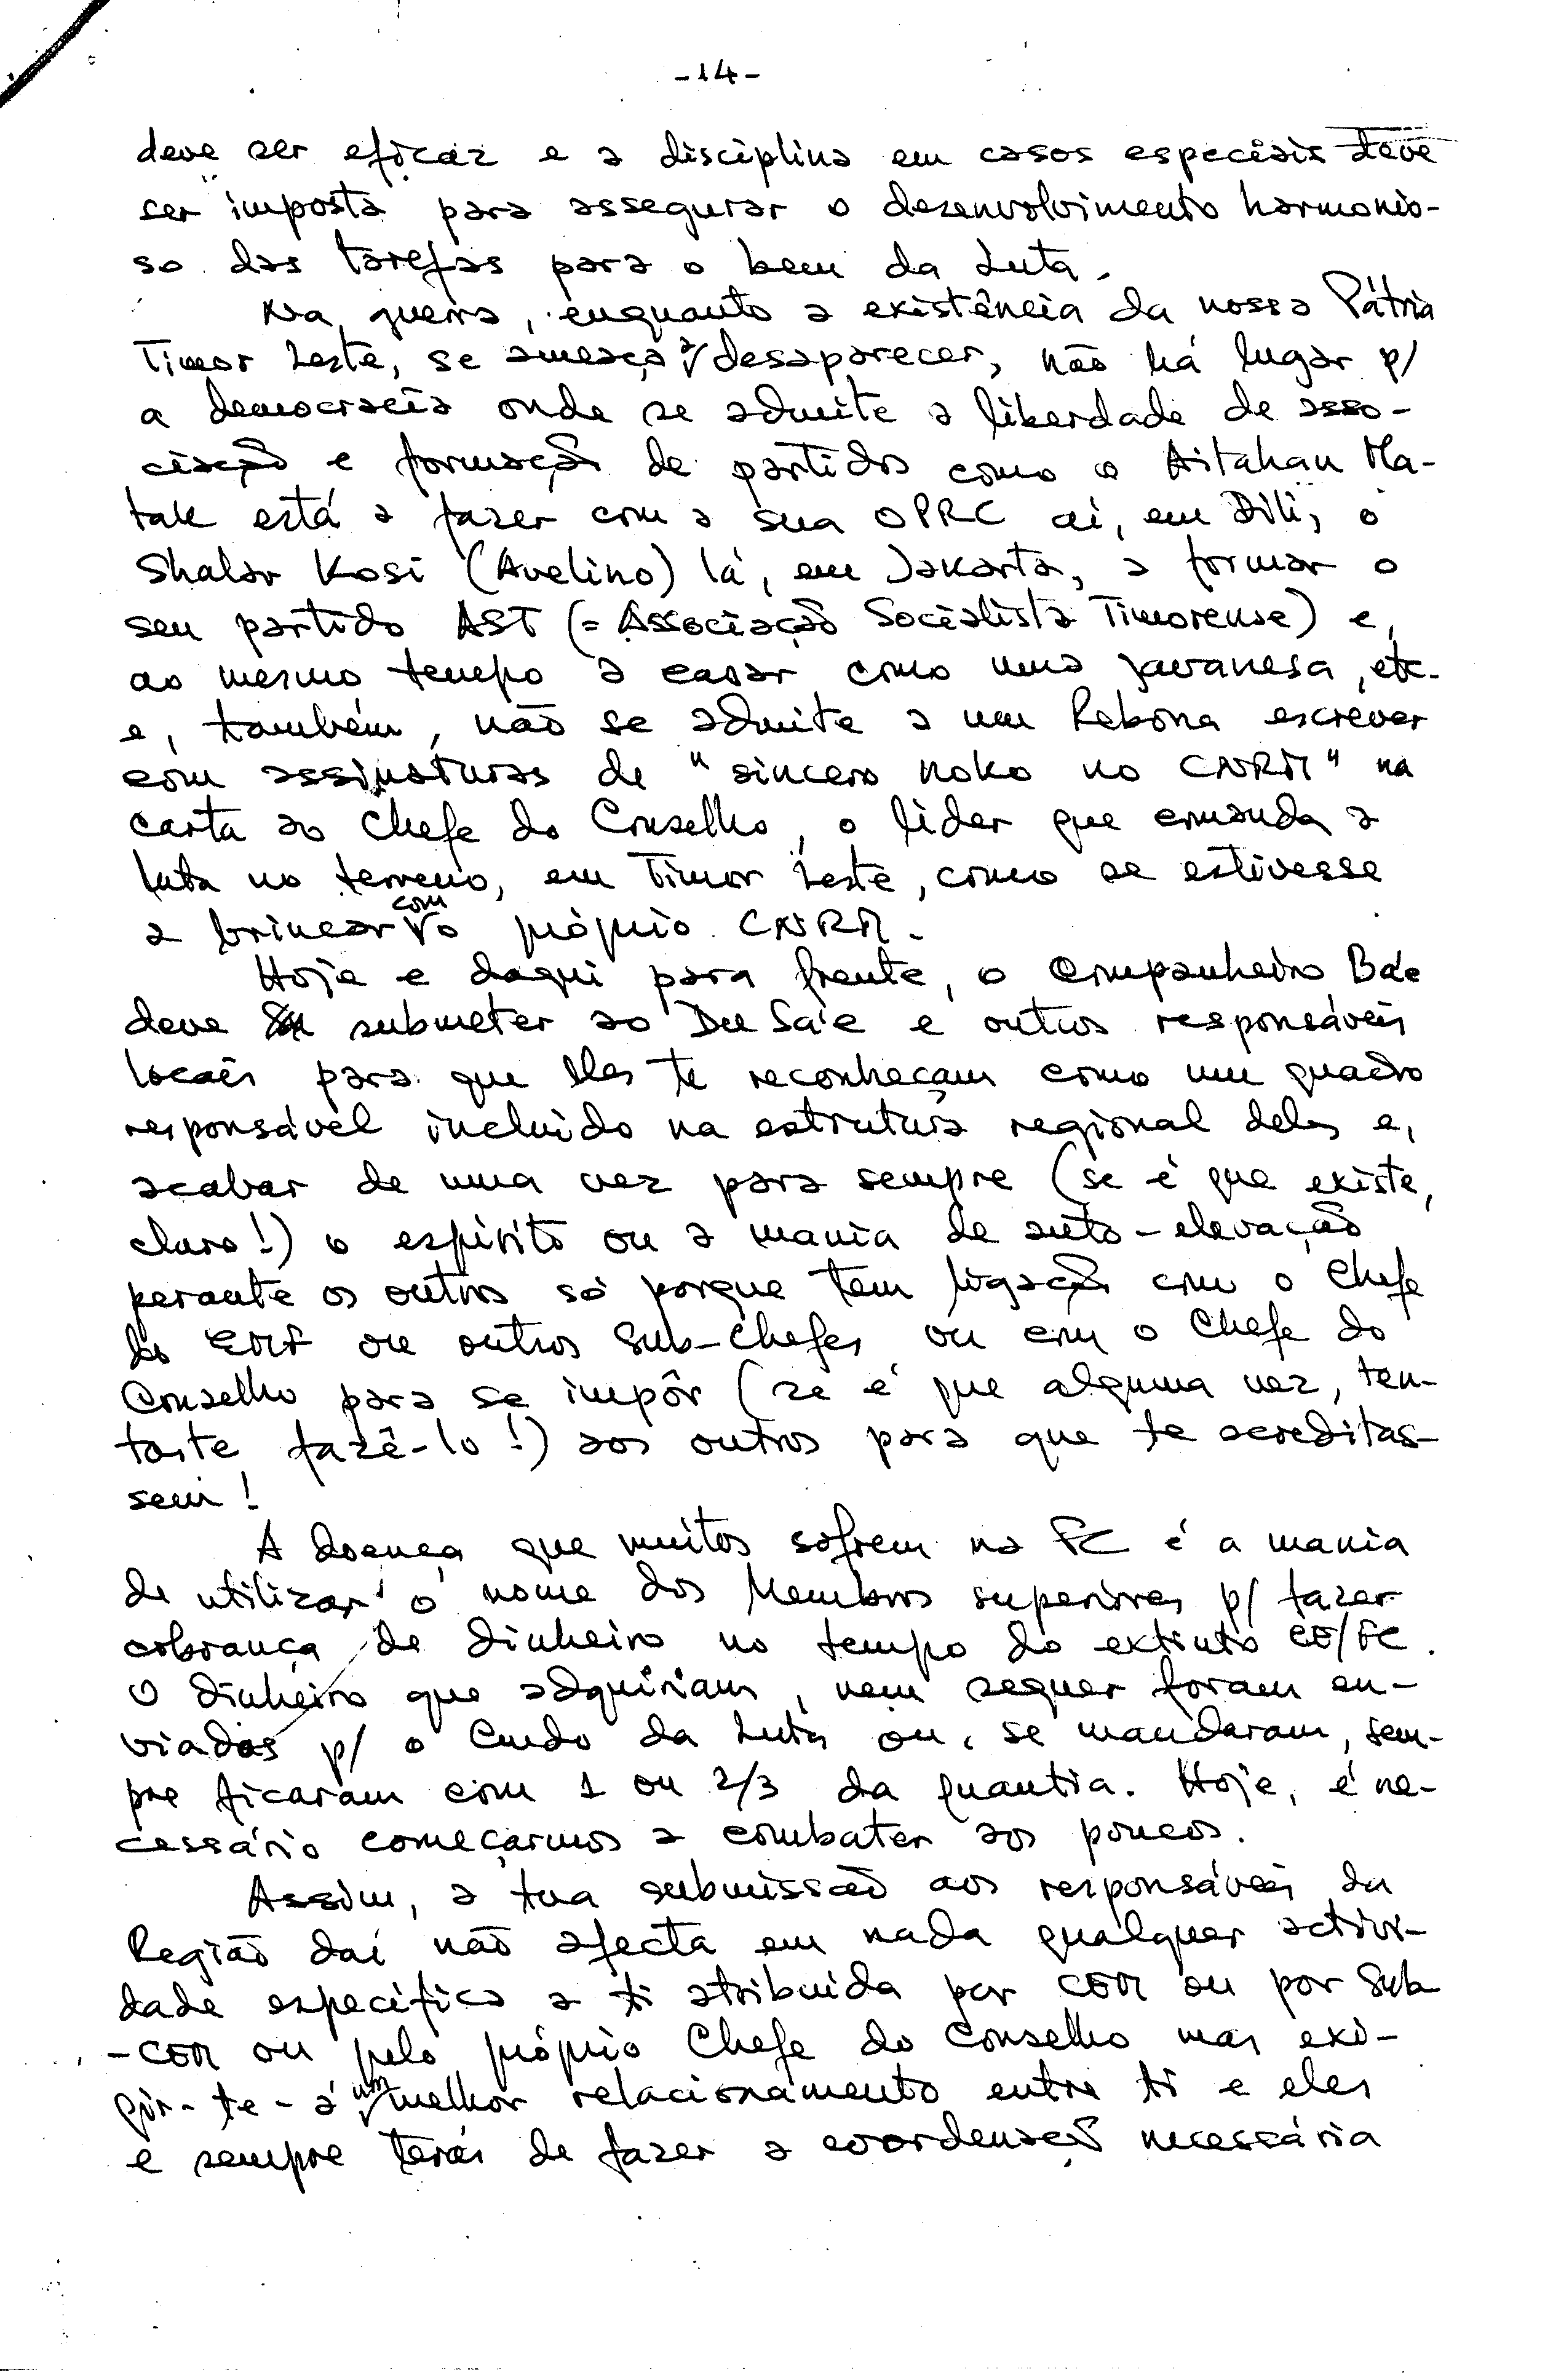 -14-
deve ser eficaz e a disciplina em casos especiais deve
ser imposta para assegurar o desenvolvimento harmonio-
so das tarefas para o bem da Luta.
Na guerra, enquanto a existência da nossa Pátria
Timor Leste, se ameaça a desaparecer, não há lugar p/
a democracia onde se admite a liberdade de asso-
ciação e formação de partidos como o Aitahan Ma-
tak está a fazer com a sua OPRC aí, em Dili, o
Shalar Kosi (Avelino) lá, em Jakarta, a formar o
seu partido AST (= Associação Socialista Timorense) e,
ao mesmo tempo a casar como uma javanesa, etc.
e, também, não se admite a um Rebona escrever
com assinaturas de "sincero noko no CNRM" na
carta ao Chefe do Conselho, o líder que comanda a
luta no terreno, em Timor Leste, como se estivesse
a brincar com o próprio CNRM.
Hoje e daqui para frente, o Companheiro Bae
deve submeter ao Du Sa'e e outros responsáveis
locais para que eles te reconheçam como um quadro
responsável incluido na estrutura regional deles e,
acabar de uma vez para sempre (se é que existe,
claro!) o espírito ou a mania de auto-elevação
perante os outros só porque tem ligação com o Chefe
do EMF ou outros Sub-Chefes ou com o Chefe do
Conselho para se impôr (se é que alguma vez, ten-
taste fazê-lo!) aos outros para que te acreditas-
sem!
A doença que muitos sofrem na FC é a mania
de utilizar o nome dos Membros superiores p/ fazer
cobrança de dinheiro no tempo do extinto CE/FC.
O dinheiro que adquiriam, nem sequer foram en-
viados p/ o Cmdo da Luta ou, se mandaram, sem-
pre ficaram com 1 ou 2/3 da quantia. Hoje, é ne-
cessário começarmos a combater aos poucos.
Assim, a tua submissão aos responsáveis da
Região daí não afecta em nada qualquer activi-
dade específica a ti atribuida por CEM ou por Sub
-CEM ou pelo próprio Chefe do Conselho mas exi-
gir-te-á um melhor relacionamento entre ti e eles
e sempre terás de fazer a coordenação necessária